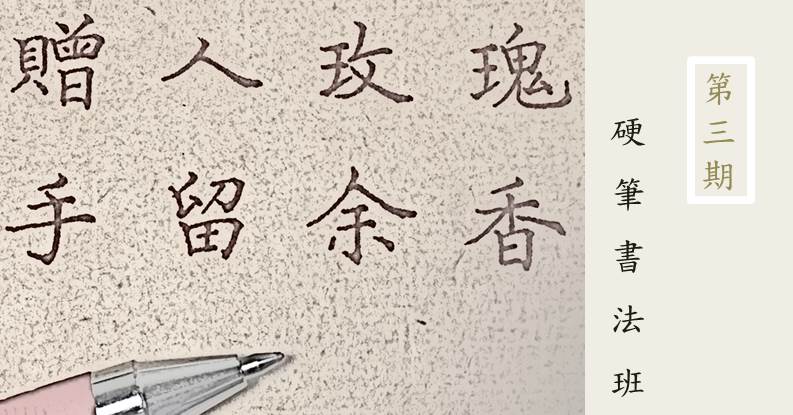 贈人玫瑰
手留余香
第三期
硬筆書法班